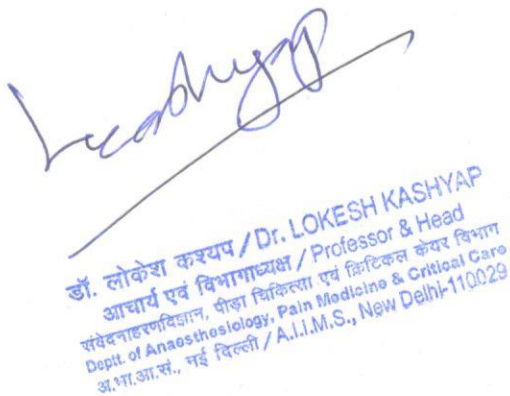 Lkashyap
डॉ. लोकेश कश्यप / Dr. LOKESH KASHYAP
आचार्य एवं विभागाध्यक्ष / Professor & Head
संवेदनाहरणविज्ञान, पीड़ा चिकित्सा एवं क्रिटिकल केयर विभाग
Deptt. of Anaesthesiology, Pain Medicine & Critical Care
अ.भा.आ.सं., नई दिल्ली / A.I.I.M.S., New Delhi-110029